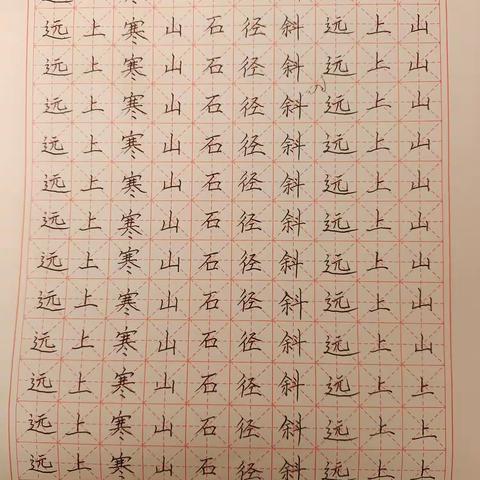 远上寒山石径斜远上山
远上寒山石径斜远上山
远上寒山石径斜远上山
远上寒山石径斜远上山
远上寒山石径斜远上山
远上寒山石径斜远上山
远上寒山石径斜远上山
远上寒山石径斜远上山
远上寒山石径斜远上山
远上寒山石径斜远上上
远上寒山石径斜远上上
远上寒山石径斜远上上